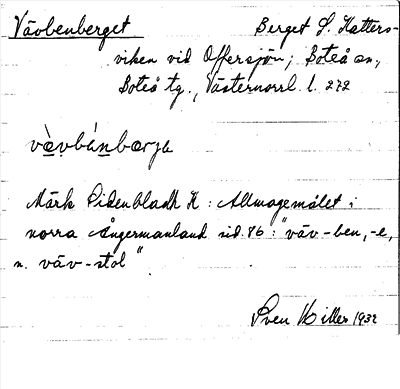 Vävbenberget Berget S. Hatters-
viken vid Offersjön; Boteå sn,
Boteå tg., Västernorrl. l. 272
vȁvbánbærja
Märk Sidenbladh K : Allmogemålet i
norra Ångermanland sid. 86 : "väv-ben, -e,
n. väv-stol"
Sven Hiller 1932